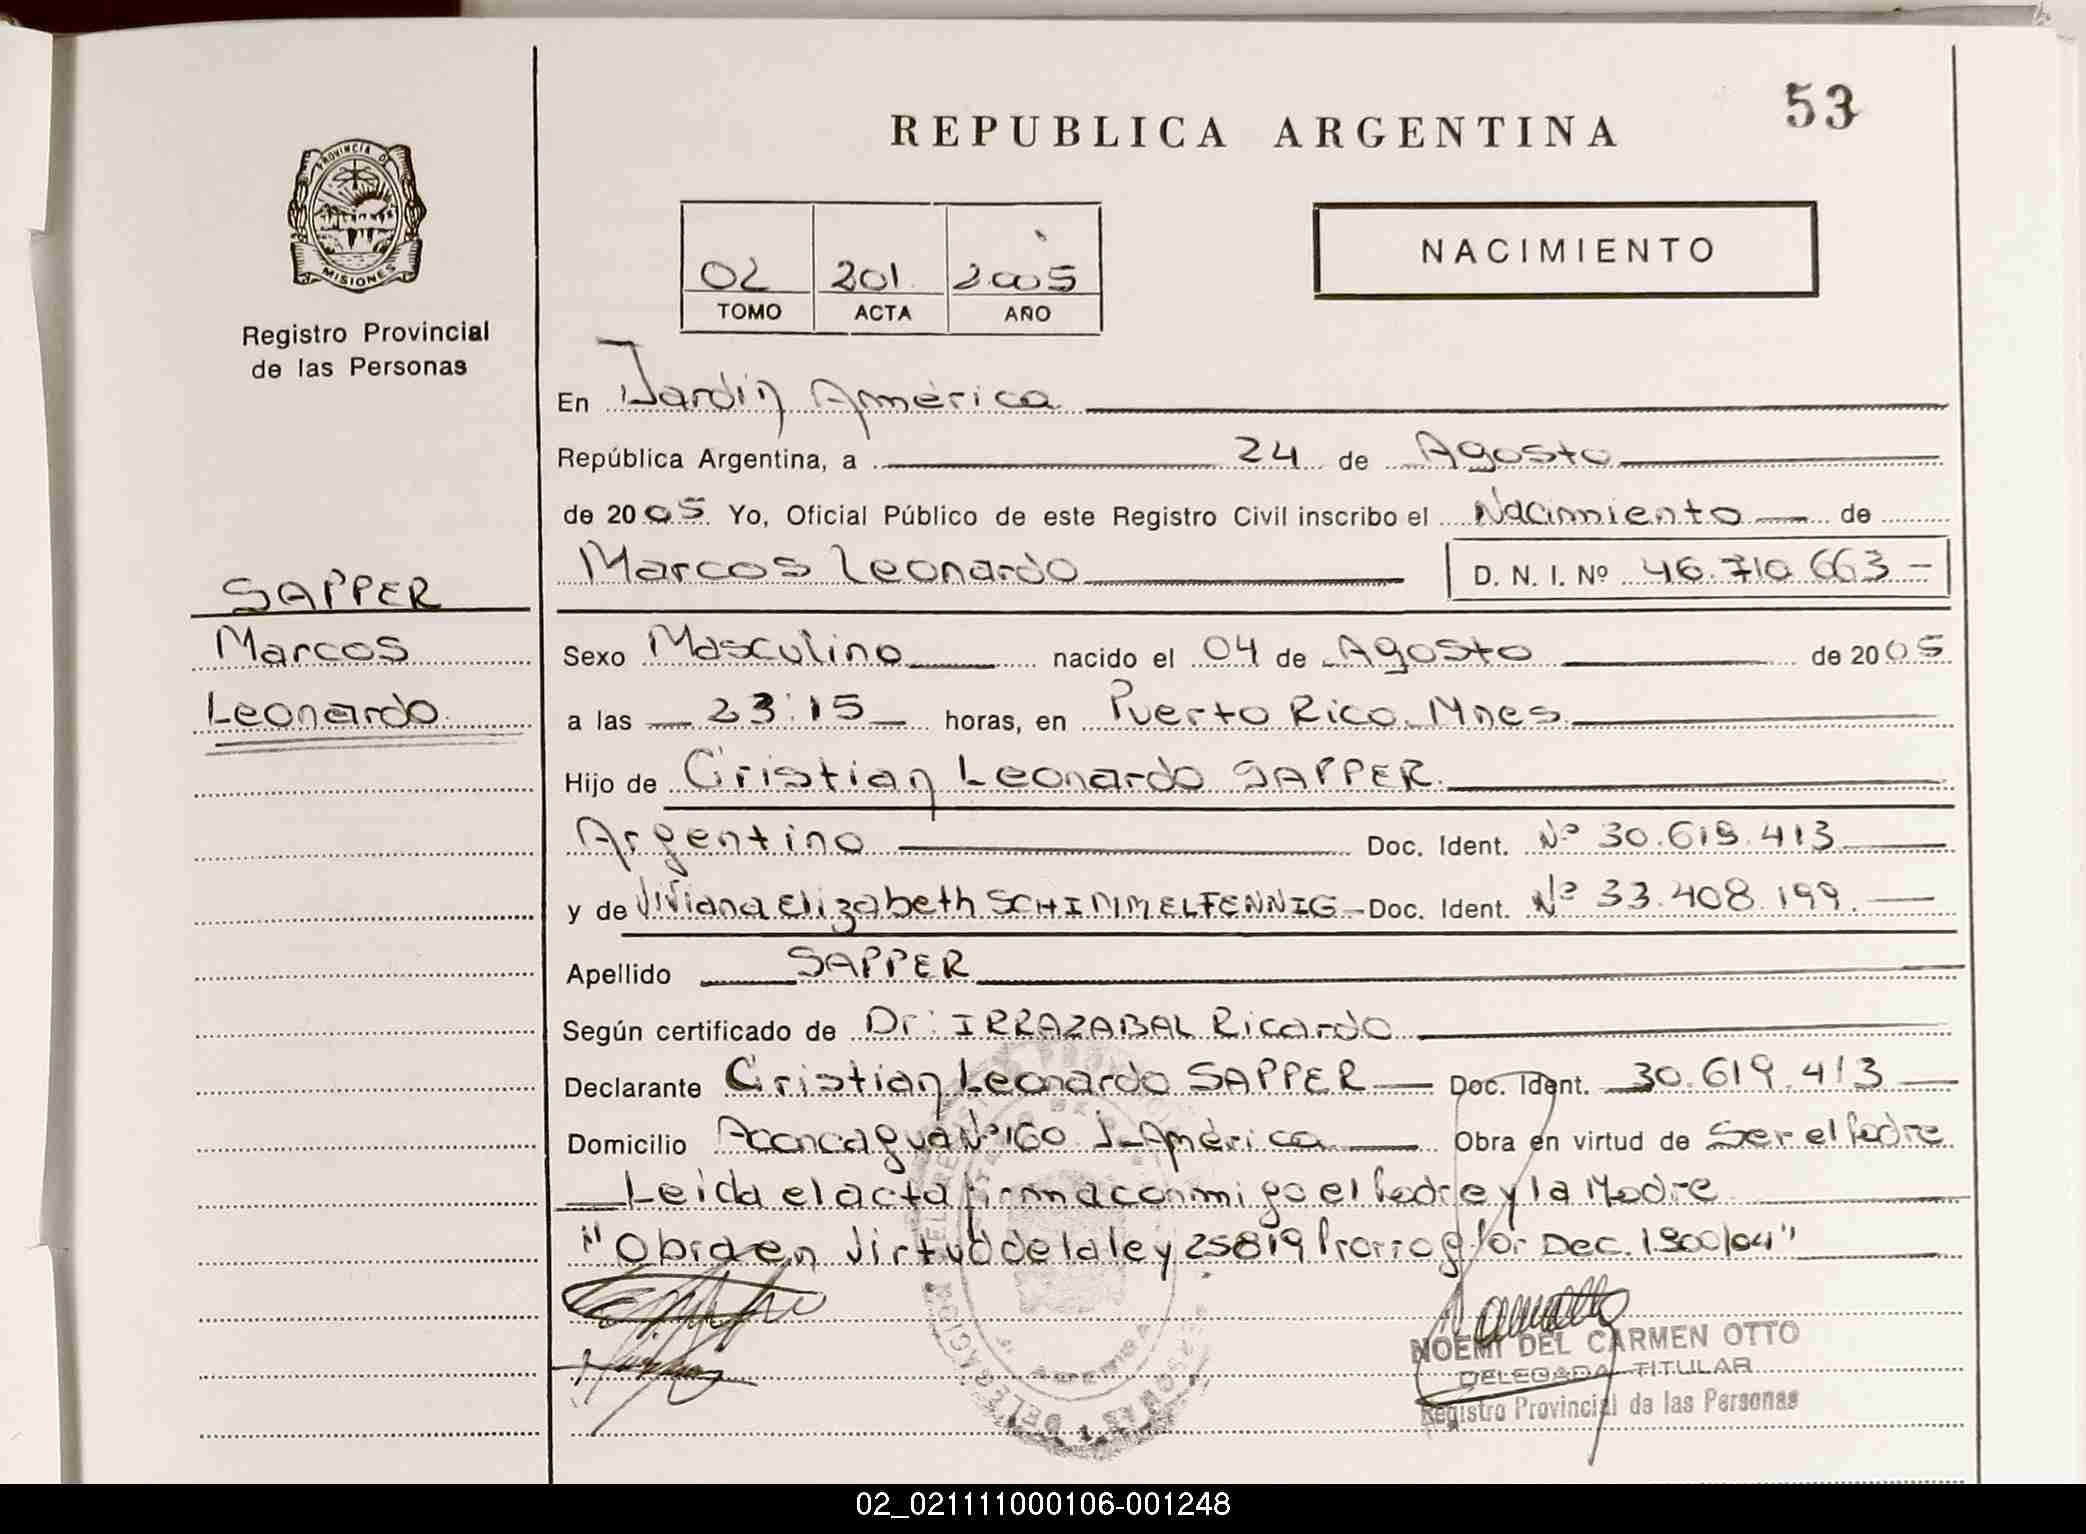 53
REPUBLICA ARGENTINA
PROVINCIA DE
MISIONES
Registro Provincial
de las Personas
NACIMIENTO
02 201 2005
TOMO ACTA AÑO
En Jardín América
República Argentina, a 24 de Agosto
de 2005 Yo, Oficial Público de este Registro Civil inscribo el Nacimiento de
Marcos Leonardo D. N. I. Nº 46.710.663-
SAPPER
Marcos
Leonardo
Sexo Masculino nacido el 04 de Agosto de 2005
a las 23:15 horas, en Puerto Rico. Mnes.
Hijo de Cristian Leonardo SAPPER.
Argentino Doc. Ident. Nº 30.619.413
y de Viviana Elizabeth SCHIMMELFENNIG- Doc. Ident. Nº 33.408.199.
Apellido SAPPER
Según certificado de Dr: IRRAZABAL Ricardo
Declarante Cristian Leonardo SAPPER Doc. Ident. 30.619.413
Domicilio Aconcagua Nº 160 J-América Obra en virtud de Ser el Padre
Leida el acta firma conmigo el Padre y la Madre
"Obra en Virtud de la ley 25819 Prorrog por Dec. 1900/04"
NOEMI DEL CARMEN OTTO
DELEGADA TITULAR
Registro Provincial de las Personas
02_021111000106-001248